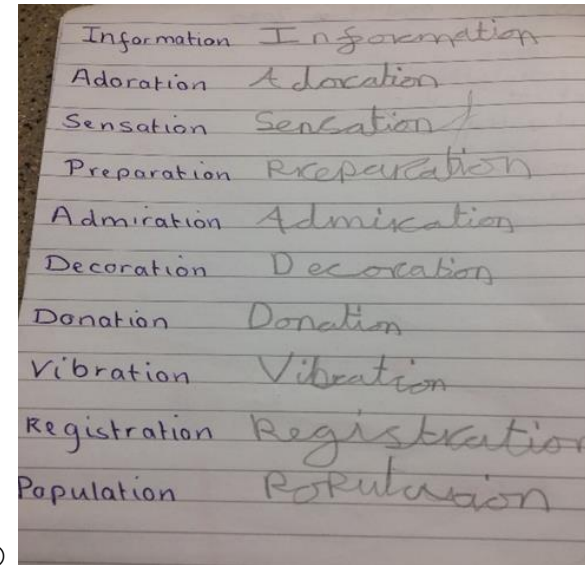 Information Information
Adoration Adoration
Sensation Sensation
Preparation Preparation
Admiration Admiration
Decoration Decoration
Donation Donation
Vibration Vibration
Registration Registration
Population